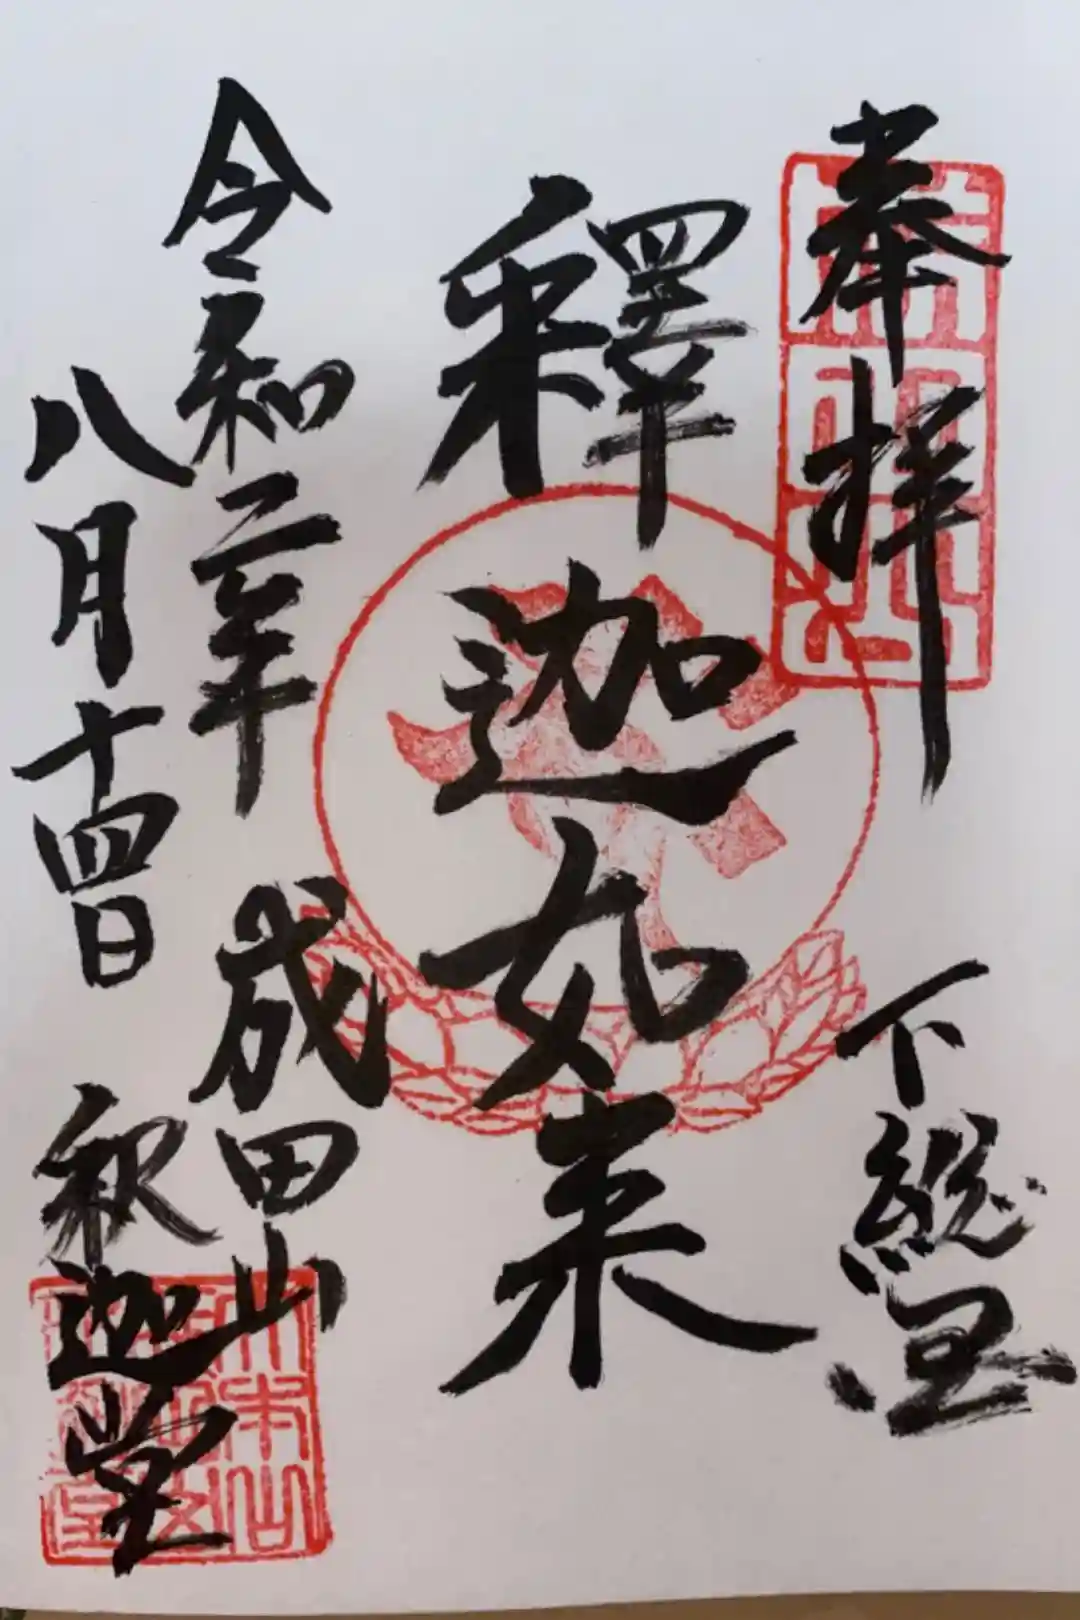 奉拝
下総国
釋迦如来
令和二年
成田山
八月十四日
釈迦堂